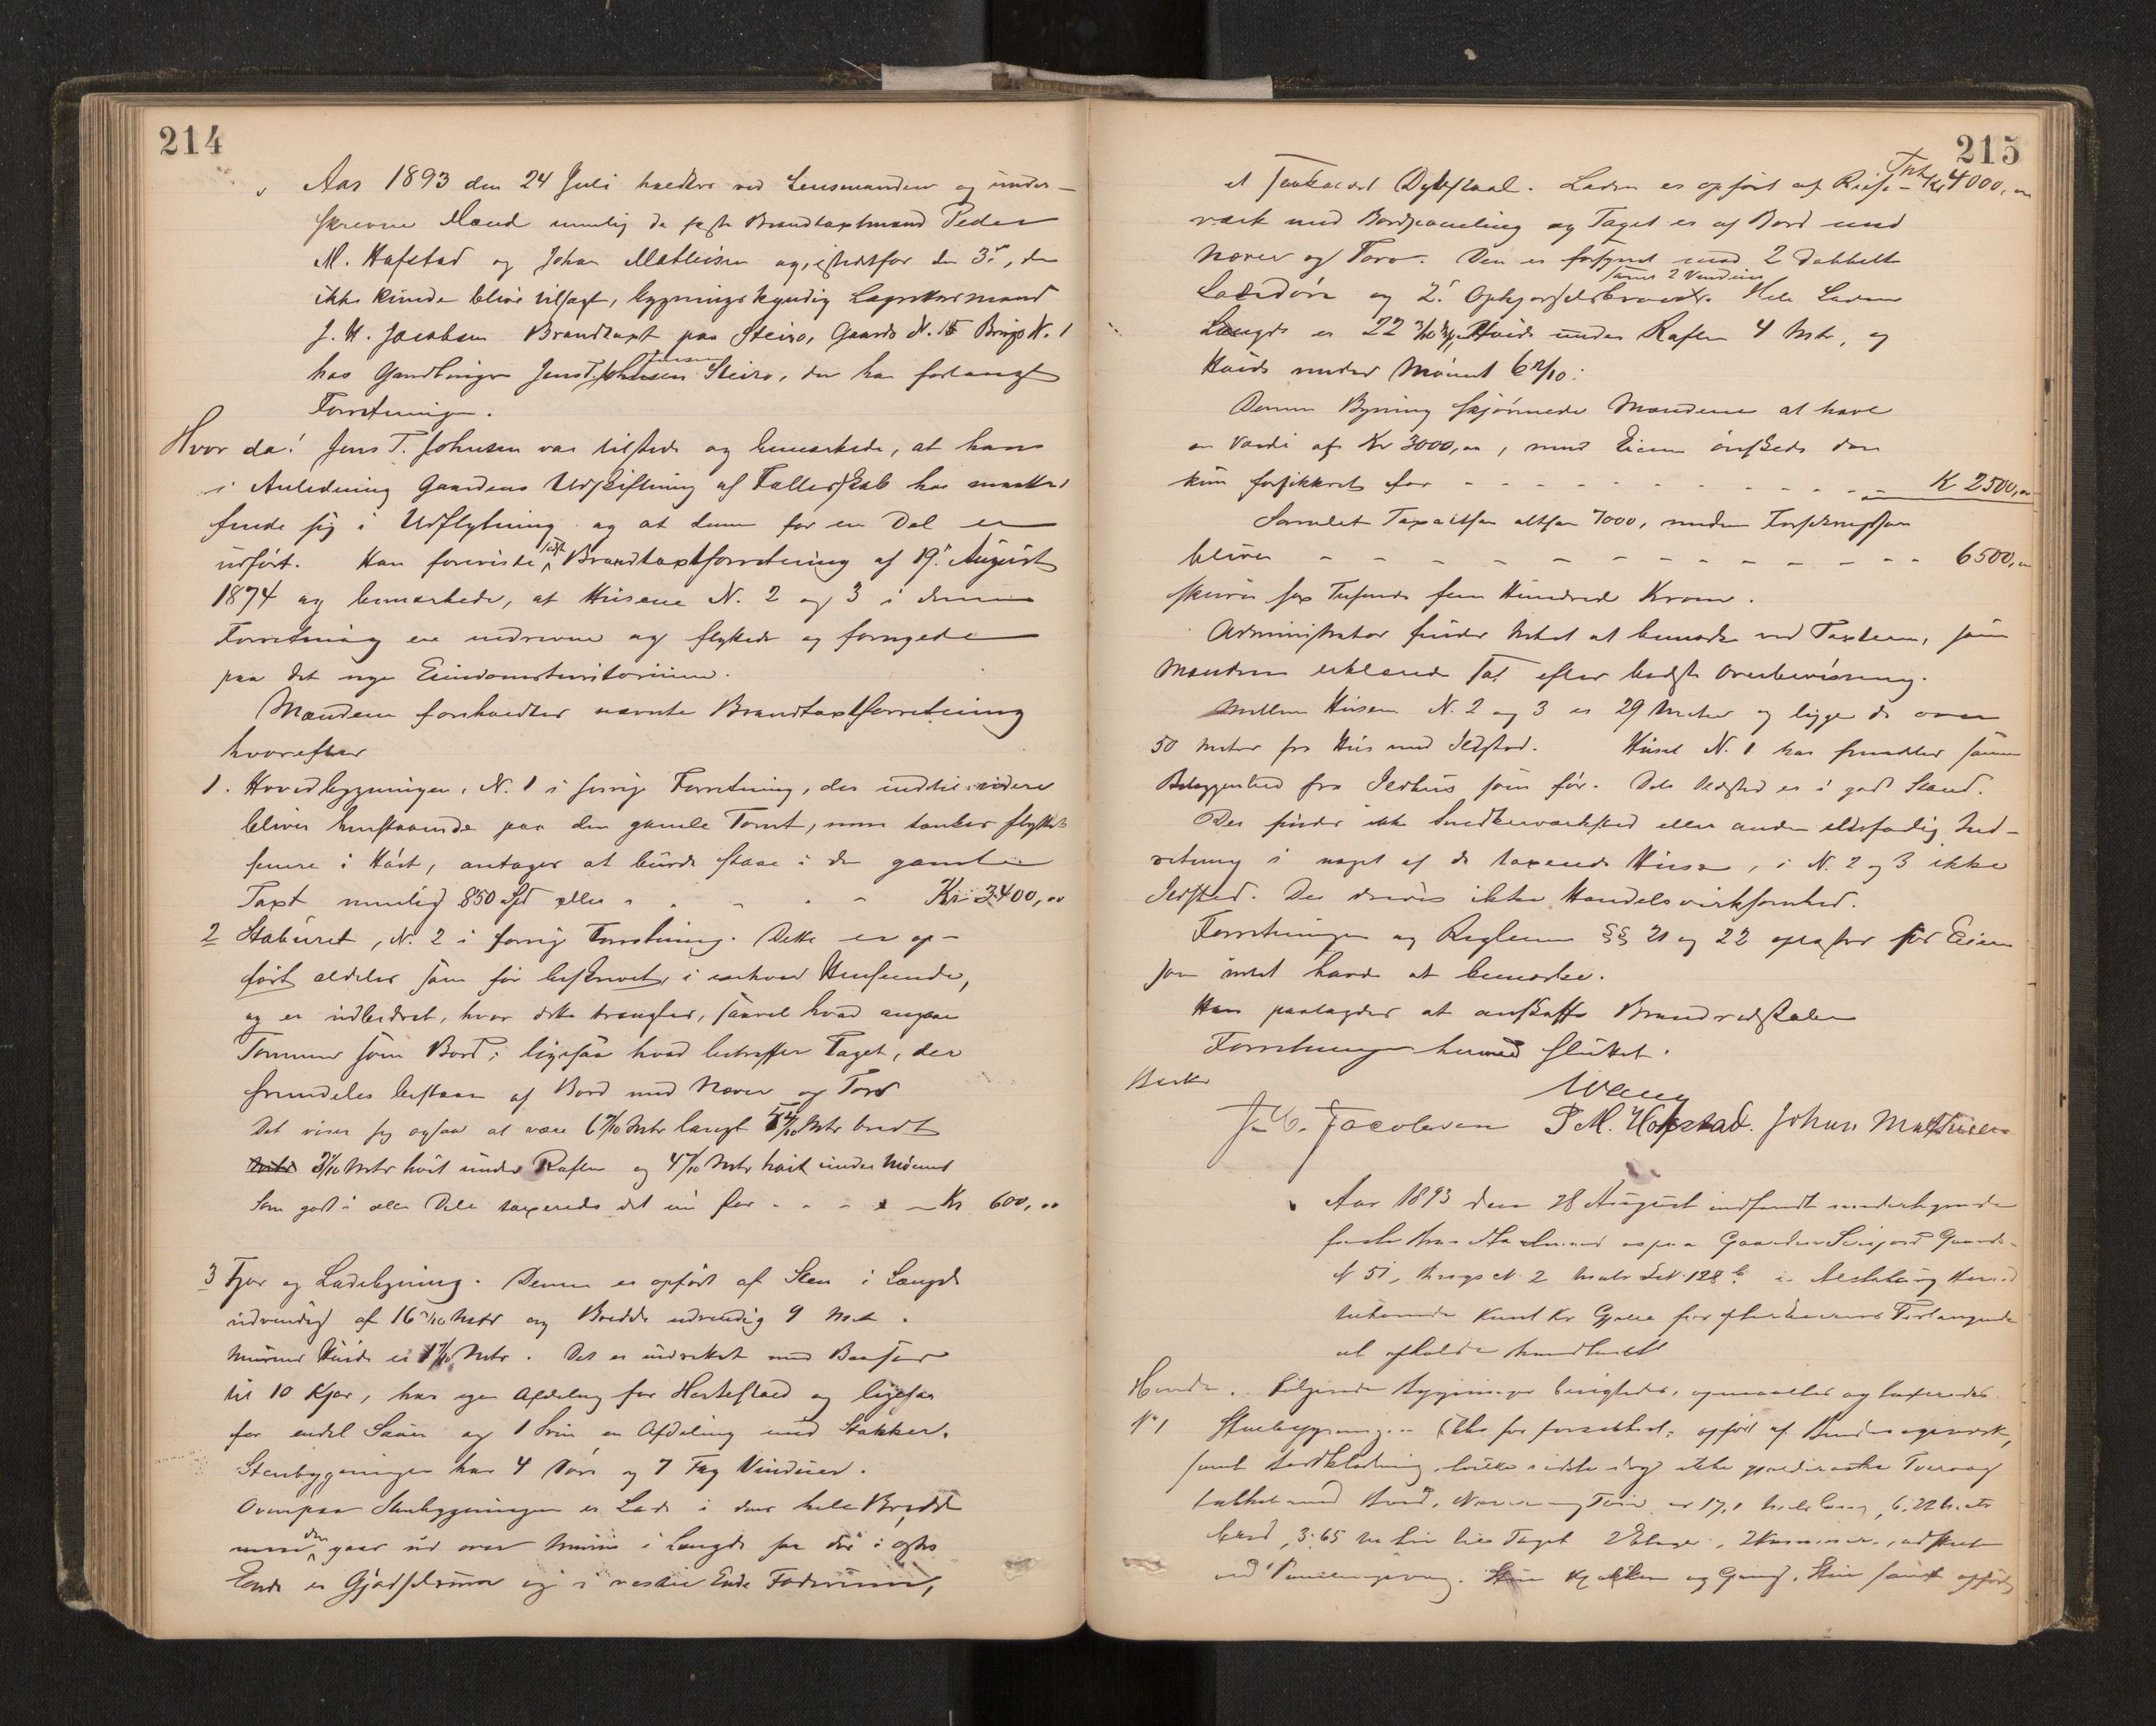 214
Aar 1893 den 24 Juli holdtes ved Lensmanden og under-
skrevne Mænd nemlig de faste Brandtaxtmænd Peder
M. Hafstad og Johan Mathisen og, istedetfor den 3die, der
ikke kunde blive tilsagt, bygningskyndig Lagrettesmand
J. H. Jacobsen Brandtaxt paa Steiro, Gaards N. 15 Brugs N. 1
hos Gaardbruger Jens T. Johnsen Steiro, der har forlangt
Forretningen.
Hvor da! Jens T. Johnsen var tilstede og bemærkede, at han
i Anledning Gaardens Udskiftning af Fællesskab har maattet
finde sig i Udflytning og at denne for en Del er
udført. Han foreviste sidste Brandtaxtforretning af 19de August
1874 og bemærkede, at Husene N. 2 og 3 i denne
Forretning ere nedrevne og flyttede og fornyede
paa det nye Eiendomsterritorium.
Mændene foreholdtes nævnte Brandtaxtforretning
hvorefter
1. Hovedbygningen, N. 1 i forrige Forretning, der indtil videre
bliver henstaaende paa den gamle Tomt, men tænkes flyttet
senere i Høst, antages at burde staa i den gamle
Taxt nemlig 850 Spd eller - - - - - Kr 3400,00
2 Stabúret, N. 2 i forrige Forretning. Dette er op-
ført aldeles som før beskrevet, i enhver Henseende,
og er udbedret, hvor dette trængtes, saavel hvad angaar
Tømmer som Bord; ligesaa hvad betræffer Taget, der
fremdeles bestaar af Bord med Næver og Torv
Det viser sig ogsaa at være 6 Mtr langt 5 Mtr bredt
3 Mtr høit under Raften og 4 Mtr høit under Mønet
Som godt i alle Dele taxeredes det nu for - - - - - Kr 600,00
3 Fjøs og Ladebygning. Denne er opført af Sten i Længde
udvendig af 16 Mtr og Bredde udvendig 9 Mtr.
Murens Høide er Mtr. Det er indredet med Baaser
til 10 Kjør, har egen Afdeling for Hestestald og ligesaa
for endel Sauer og 1 Svin en Afdeling med Stakker.
Stenbygningen har 4 Døre og 7 Fag Vinduer.
Ovenpaa Stenbygningen er Lade i dens hele Bredde
men den gaar ud over Muren i Længde saa der i østre
Ende er Gjødselrum og i vestre Ende Foderrum,
215
et Dybstaal. Laden er opført af Reise- Kr 4000,00
værk med Bordpaneling og Taget er af Bord med
Næver og Torv. Den er forsynet med 2 dobbelte
samt 2 Vinduer
Ladedøre og 2 Opkjørselsbroer. Hele Ladens
Længde er 22 Høide under Raften 4 Mtr, og
Høide under Mønet 6
Denne Bygning skjønnede Mændene at have
en Værdi af Kr 3000,00, men Eieren ønskede den
kun forsikkret for - - - - - - - - - K 2500,00
Samlet Taxt altsaa 7000, medens Forsikringssum
bliver - - - - - - - - - - - 6500,00
skriver sex Tusinde fem Hundred Kroner.
Administrator finder Intet at bemærke ved Taxterne, som
Mændene erklærede sat efter bedste Overbevisning.
Mellem Husene N. 2 og 3 er 29 Meter og ligge de over
50 Meter fra Hus med Ildsted. Huset N. 1 har fremdeles samme
Beliggenhed fra Ildhus som før. Dets Ildsted er i god Stand.
Der findes ikke Snedkerværksted eller anden ildsfarlig Ind-
retning i noget af de taxerede Huse, i N. 2 og 3 ikke
Ildsted. Der drives ikke Handelsvirksomhed.
Forretningen og Reglerne §§ 21 og 22 oplæstes for Eieren
som intet havde at bemærke.
Han paalagdes at anskaffe Brandredskaber
Forretningen hermed sluttet.
Wang
J. H. Jacobsen P. M. Hafstad. Johan Mathisen
Aar 1893 den 28 August indfandt undertegnede
paa Gaarden Gaards-
N 51, Brugs N. 2 Matr Lb. 128 b i Herred
Forlangende
at afholde Brandtaxt
Følgende Bygninger besigtedes, opmaaltes og taxeredes
No 1 Stuebygningen (ikke før forsikret, opført af Bindingsverk,
samt Bordklædning,
tækket med Bord, Næver og Torv er 17,1 M. lang, 6,22 Meter
bred, 3,65 M til Taget 2 Etager,
Kjøkken og Gang,